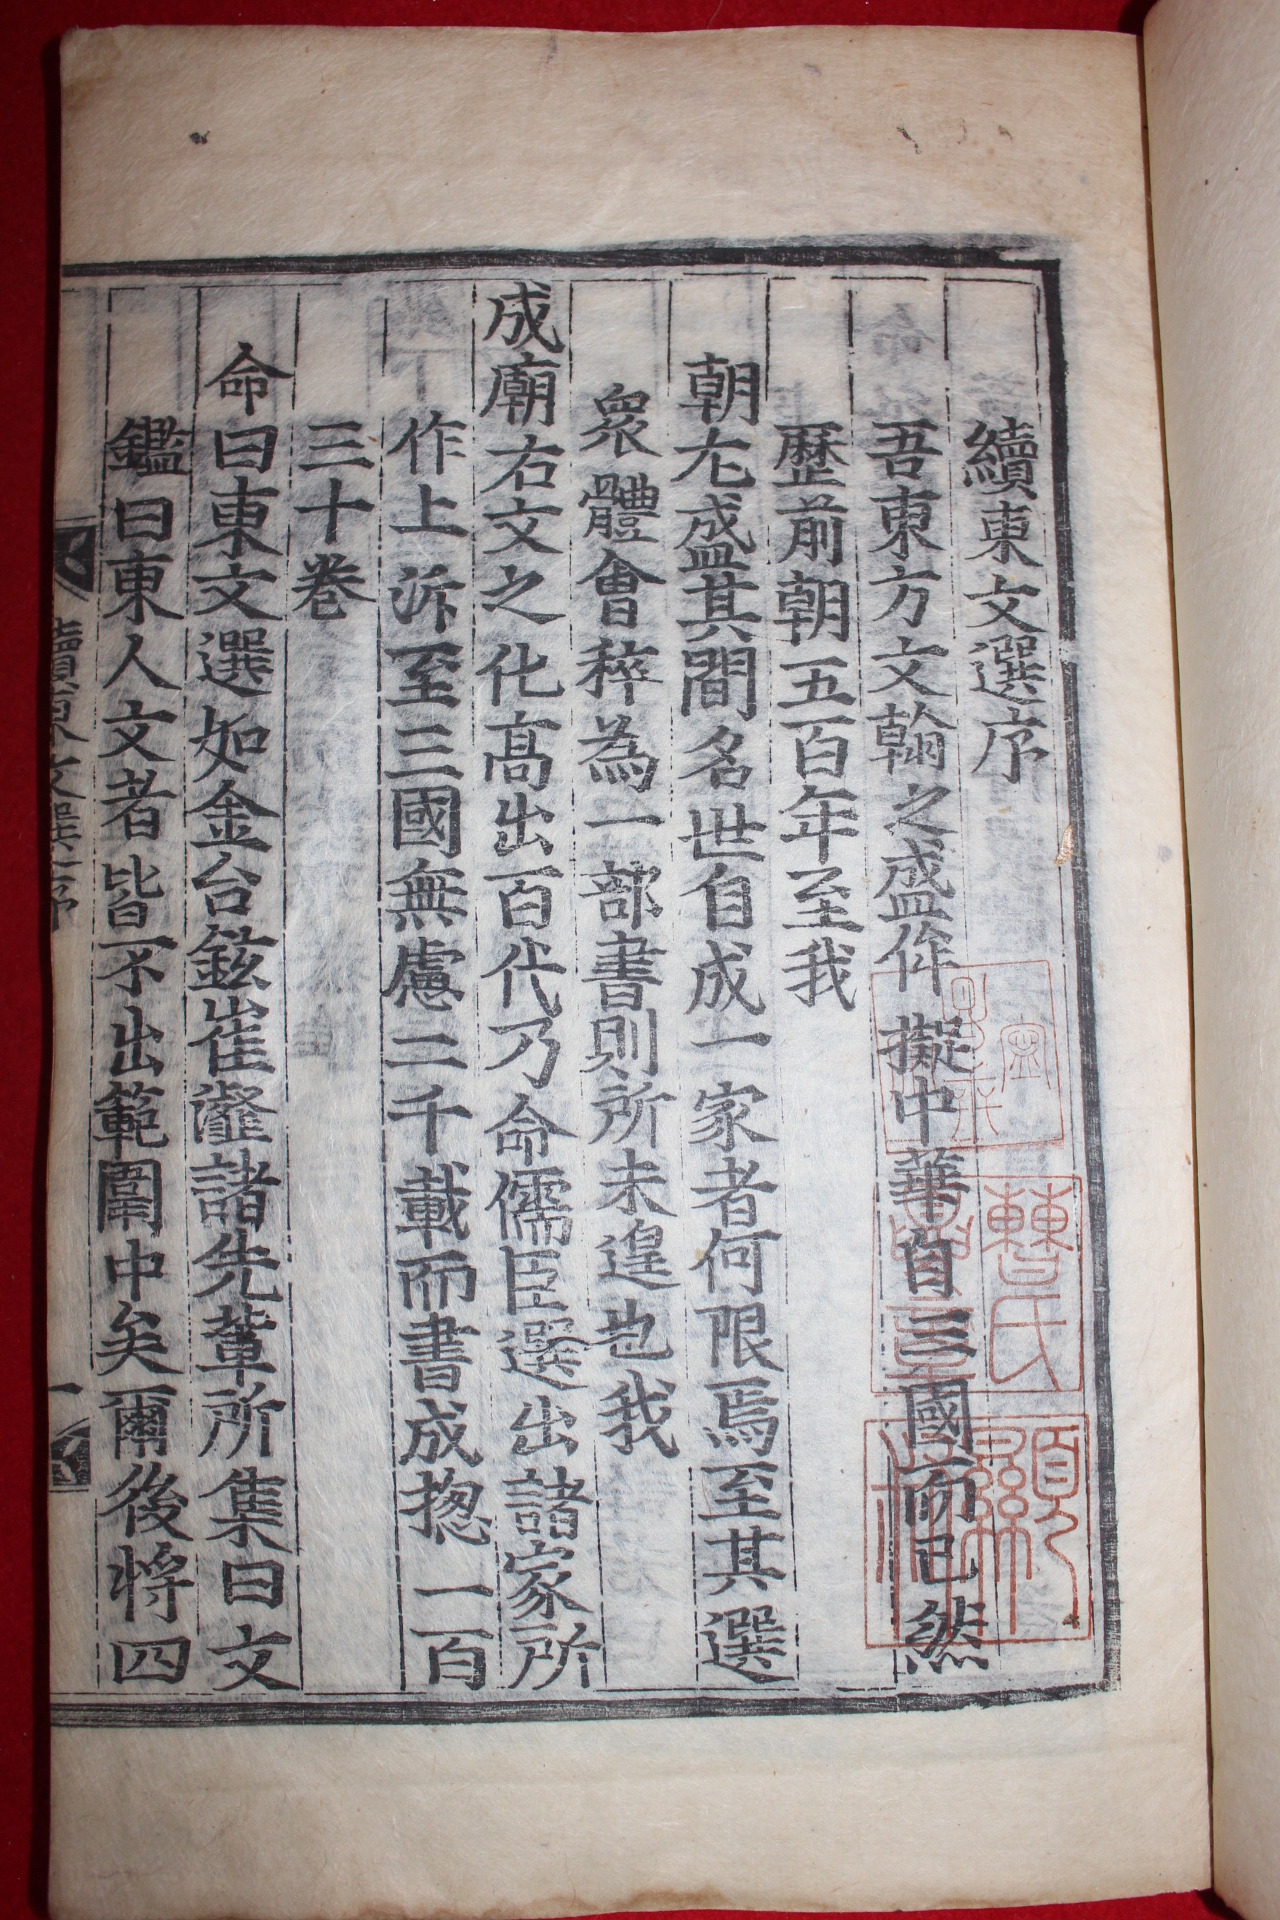 續東文選序
吾東方文翰之盛侔擬中華自三國而已然
歷前朝五百年至我
朝尤盛其間名世自成一家者何限焉至其選
衆體會稡為一部書則所未遑也我
成廟右文之化高出百代乃命儒臣選出諸家所
作上泝至三國無慮二千載而書成揔一百
三十卷
命曰東文選如金台鉉崔瀣諸先輩所集曰文
鑑曰東人文者皆不出範圍中矣爾後將四
續東文選序
一